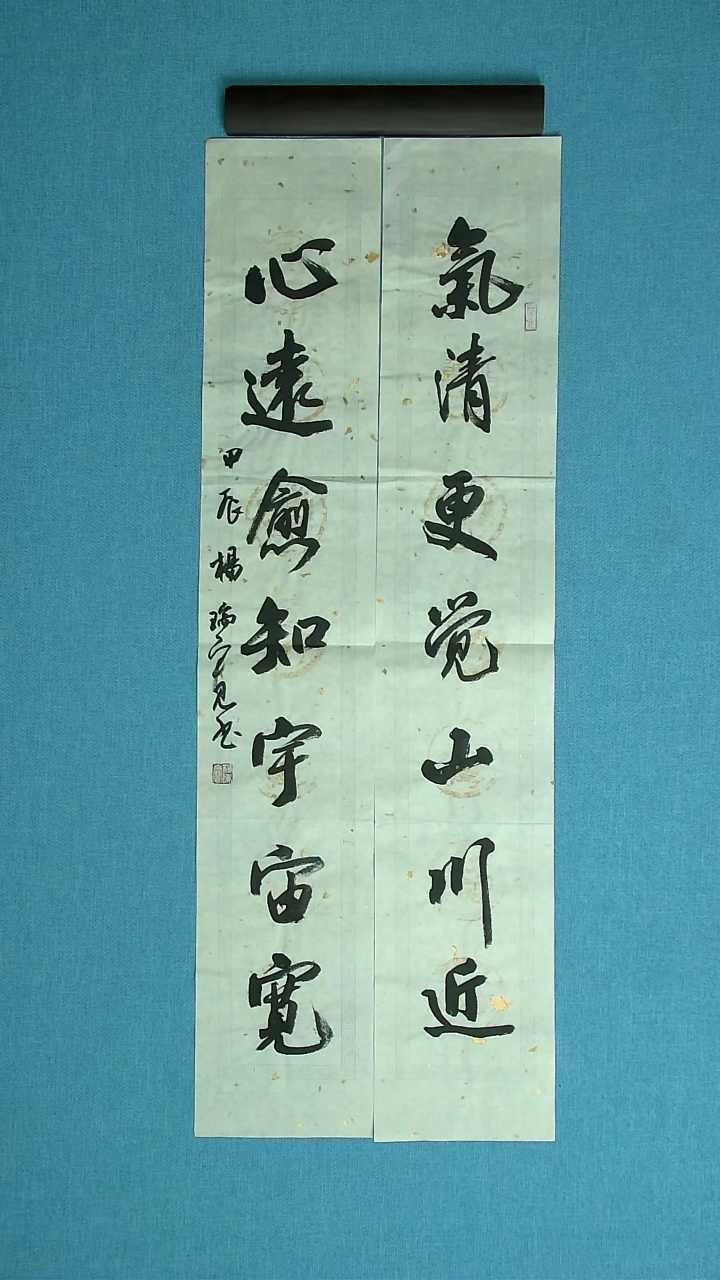 氣清更觉山川近
心遠愈知宇宙寬
甲辰楊瑞寬书